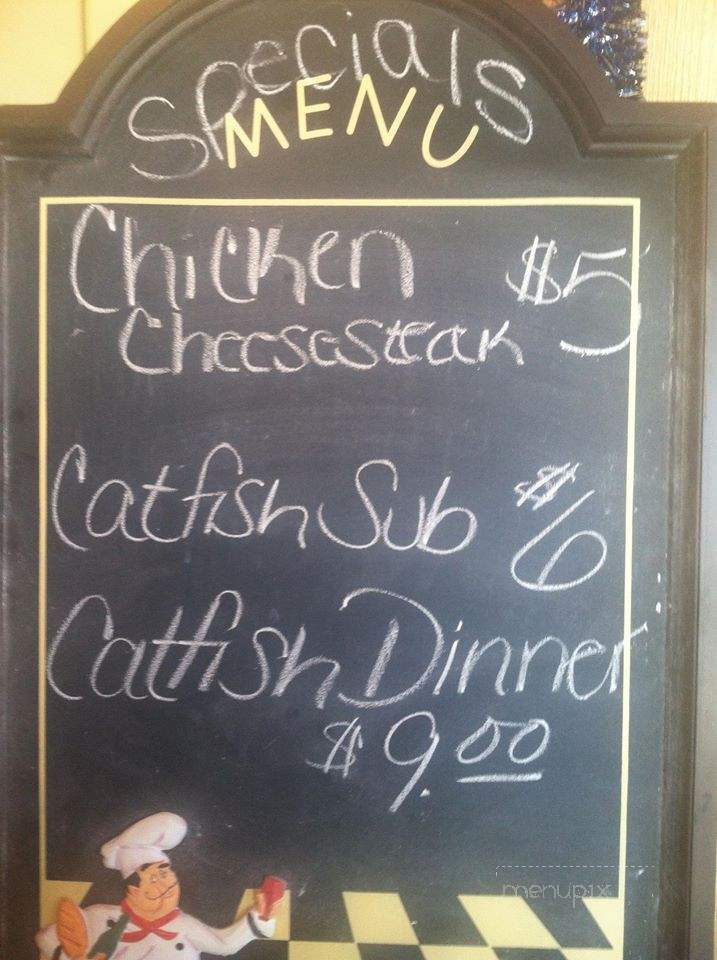 Specials
MENU
Chicken $5
Cheesesteak
Catfish Sub $6
Catfish Dinner
$9.00
menupix